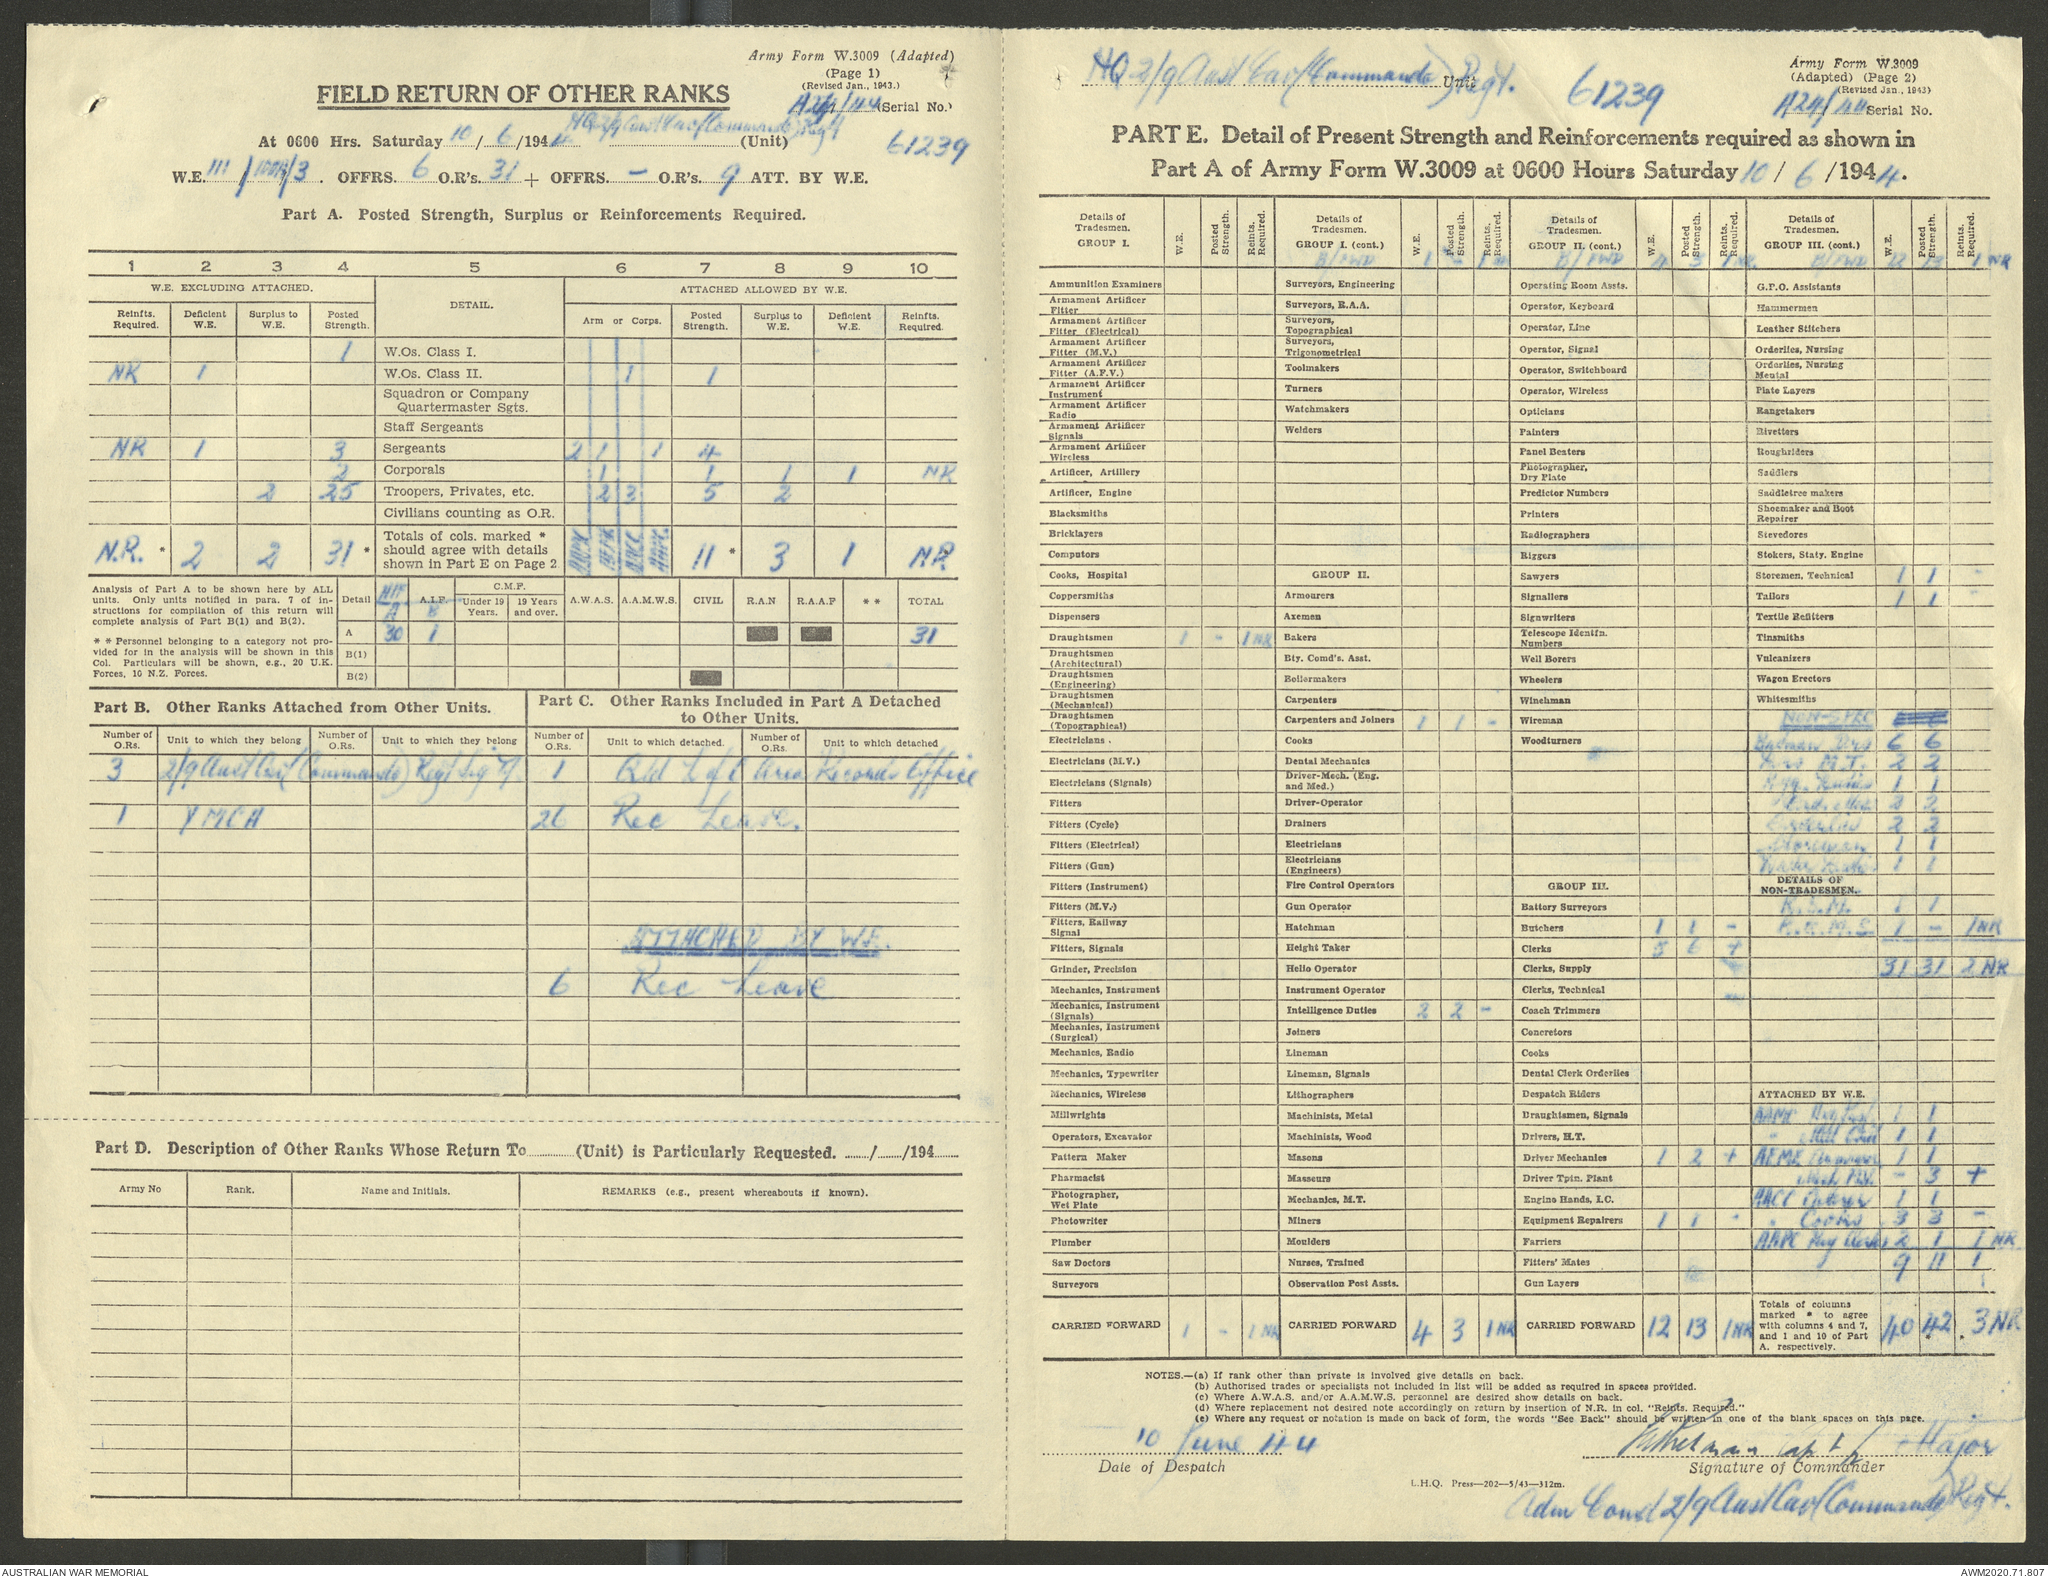 Army Form W.3009 (Adapted)
(Page 1)
(Revised Jan., 1943.)
FIELD RETURN OF OTHER RANKS
A24/44 (Serial No.)
At 0600 Hrs. Saturday 10/6/1944 HQ 2/9 Aust Cav (Commando) Regt (Unit)
61239
W.E. 111/ /3. OFFRS. 6 O.R's. 31 + OFFRS. - O.R's. 9 ATT. BY W.E.
Part A. Posted Strength, Surplus or Reinforcements Required.
1 2 3 4 5 6 7 8 9 10
W.E. EXCLUDING ATTACHED. DETAIL. ATTACHED ALLOWED BY W.E.
Reinfts. Required. Deficient W.E. Surplus to W.E. Posted Strength. Arm or Corps. Posted Strength. Surplus to W.E. Deficient W.E. Reinfts. Required.
1 W.Os. Class I.
NR 1 W.Os. Class II. 1 1
Squadron or Company Quartermaster Sgts.
Staff Sergeants
NR 1 3 Sergeants 2 1 1 4
2 Corporals 1 1 1 1 NR
2 25 Troopers, Privates, etc. 2 3 5 2
Civilians counting as O.R.
N.R. * 2 2 31 * Totals of cols. marked * should agree with details shown in Part E on Page 2 11 * 3 1 NR
Analysis of Part A to be shown here by ALL units. Only units notified in para. 7 of instructions for compilation of this return will complete analysis of Part B(1) and B(2).
* * Personnel belonging to a category not provided for in the analysis will be shown in this Col. Particulars will be shown, e.g., 20 U.K. Forces, 10 N.Z. Forces.
Detail A.I.F. C.M.F. Under 19 Years. 19 Years and over. A.W.A.S. A.A.M.W.S. CIVIL R.A.N R.A.A.F * * TOTAL
A B
A 30 1 31
B(1)
B(2)
Part B. Other Ranks Attached from Other Units.
Part C. Other Ranks Included in Part A Detached to Other Units.
Number of O.Rs. Unit to which they belong Number of O.Rs. Unit to which they belong Number of O.Rs. Unit to which detached. Number of O.Rs. Unit to which detached
3 2/9 Aust Cav (Commando) Regt Sig Tp. 1 Qld L of C Area Records Office
1 YMCA 26 Rec Leave.
ATTACHED BY W.E.
6 Rec Leave
Part D. Description of Other Ranks Whose Return To (Unit) is Particularly Requested. / /194
Army No Rank. Name and Initials. REMARKS (e.g., present whereabouts if known).
HQ 2/9 Aust Cav (Commando) Regt. Unit
61239
Army Form W.3009
(Adapted) (Page 2)
(Revised Jan., 1943)
A24/44 Serial No.
PART E. Detail of Present Strength and Reinforcements required as shown in
Part A of Army Form W.3009 at 0600 Hours Saturday 10/6/1944.
Details of Tradesmen. GROUP I. W.E. Posted Strength. Reints. Required.
Ammunition Examiners
Armament Artificer Fitter
Armament Artificer Fitter (Electrical)
Armament Artificer Fitter (M.V.)
Armament Artificer Fitter (A.F.V.)
Armament Artificer Instrument
Armament Artificer Radio
Armament Artificer Signals
Armament Artificer Wireless
Artificer, Artillery
Artificer, Engine
Blacksmiths
Bricklayers
Computors
Cooks, Hospital
Coppersmiths
Dispensers
Draughtsmen 1 - 1 NR
Draughtsmen (Architectural)
Draughtsmen (Engineering)
Draughtsmen (Mechanical)
Draughtsmen (Topographical)
Electricians .
Electricians (M.V.)
Electricians (Signals)
Fitters
Fitters (Cycle)
Fitters (Electrical)
Fitters (Gun)
Fitters (Instrument)
Fitters (M.V.)
Fitters, Railway Signal
Fitters, Signals
Grinder, Precision
Mechanics, Instrument
Mechanics, Instrument (Signals)
Mechanics, Instrument (Surgical)
Mechanics, Radio
Mechanics, Typewriter
Mechanics, Wireless
Millwrights
Operators, Excavator
Pattern Maker
Pharmacist
Photographer, Wet Plate
Photowriter
Plumber
Saw Doctors
Surveyors
CARRIED FORWARD 1 - 1 NR
Details of Tradesmen. GROUP I. (cont.) W.E. Posted Strength. Reints. Required.
B/FWD 1 - 1 NR
Surveyors, Engineering
Surveyors, R.A.A.
Surveyors, Topographical
Surveyors, Trigonometrical
Toolmakers
Turners
Watchmakers
Welders
GROUP II.
Armourers
Axemen
Bakers
Bty. Comd's. Asst.
Boilermakers
Carpenters
Carpenters and Joiners 1 1 -
Cooks
Dental Mechanics
Driver-Mech. (Eng. and Med.)
Driver-Operator
Drainers
Electricians
Electricians (Engineers)
Fire Control Operators
Gun Operator
Hatchman
Height Taker
Helio Operator
Instrument Operator
Intelligence Duties 2 2 -
Joiners
Lineman
Lineman, Signals
Lithographers
Machinists, Metal
Machinists, Wood
Masons
Masseurs
Mechanics, M.T.
Miners
Moulders
Nurses, Trained
Observation Post Assts.
CARRIED FORWARD 4 3 1 NR
Details of Tradesmen. GROUP II. (cont.) W.E. Posted Strength. Reints. Required.
B/FWD 4 3 1 NR
Operating Room Assts.
Operator, Keyboard
Operator, Line
Operator, Signal
Operator, Switchboard
Operator, Wireless
Opticians
Painters
Panel Beaters
Photographer, Dry Plate
Predictor Numbers
Printers
Radiographers
Riggers
Sawyers
Signallers
Signwriters
Telescope Identfn. Numbers
Well Borers
Wheelers
Winchman
Wireman
Woodturners
GROUP III.
Battery Surveyors
Butchers 1 1 -
Clerks 5 6 +
Clerks, Supply
Clerks, Technical
Coach Trimmers
Concretors
Cooks
Dental Clerk Orderlies
Despatch Riders
Draughtsmen, Signals
Drivers, H.T.
Driver Mechanics 1 2 +
Driver Tptn. Plant
Engine Hands, I.C.
Equipment Repairers 1 1 -
Farriers
Fitters' Mates
Gun Layers
CARRIED FORWARD 12 13 1 NR
Details of Tradesmen. GROUP III. (cont.) W.E. Posted Strength. Reints. Required.
B/FWD 12 13 1 NR
G.P.O. Assistants
Hammermen
Leather Stitchers
Orderlies, Nursing
Orderlies, Nursing Mental
Plate Layers
Rangetakers
Rivetters
Roughriders
Saddlers
Saddletree makers
Shoemaker and Boot Repairer
Stevedores
Stokers, Staty. Engine
Storemen, Technical 1 1 -
Tailors 1 1 -
Textile Refitters
Tinsmiths
Vulcanizers
Wagon Erectors
Whitesmiths
NON-SPEC
Batman Dvrs 6 6
Dvrs M.T. 2 2
Hyg. Duties 1 1
2 2
Orderlies 2 2
Storeman 1 1
Water Duties 1 1
DETAILS OF NON-TRADESMEN.
R.S.M. 1 1
R.Q.M.S. 1 - 1 NR
31 31 2 NR
ATTACHED BY W.E.
AAMC 1 1
" 1 1
AEME 1 1
- 3 +
AACC Caterer 1 1
" Cooks 3 3 -
AAPC Pay Clerks 2 1 1 NR
9 11 1
Totals of columns marked * to agree with columns 4 and 7, and 1 and 10 of Part A. respectively. 40 42 3 NR
NOTES.—(a) If rank other than private is involved give details on back.
(b) Authorised trades or specialists not included in list will be added as required in spaces provided.
(c) Where A.W.A.S. and/or A.A.M.W.S. personnel are desired show details on back.
(d) Where replacement not desired note accordingly on return by insertion of N.R. in col. "Reints. Required."
(e) Where any request or notation is made on back of form, the words "See Back" should be written in one of the blank spaces on this page.
10 June 44
Date of Despatch
Capt Major
Signature of Commander
L.H.Q. Press—202—5/43—312m.
Adm Comd 2/9 Aust Cav (Commando) Regt.
AUSTRALIAN WAR MEMORIAL
AWM2020.71.807